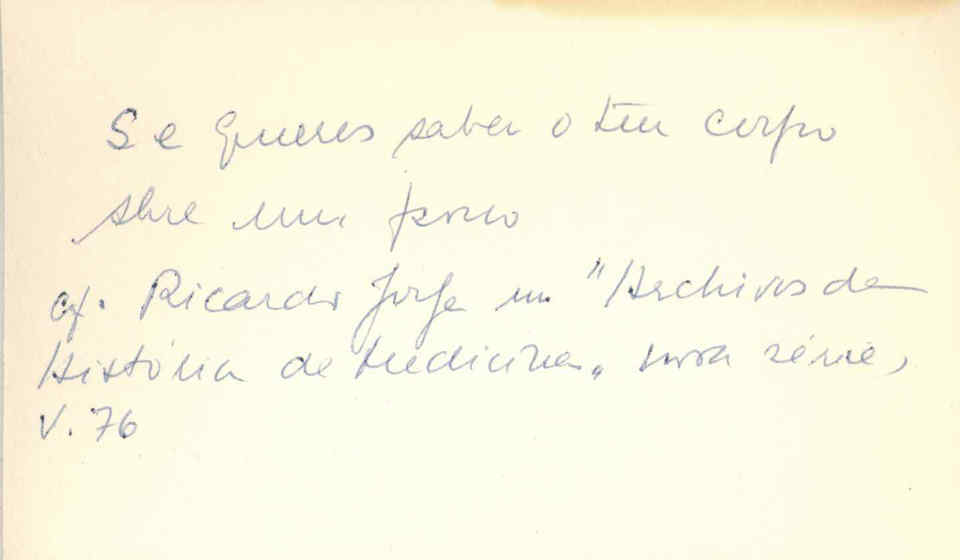 Se queres saber o teu corpo
abre um porco
cf. Ricardo Jorge in "Archivos da
História da Medicina", nova série,
V. 76